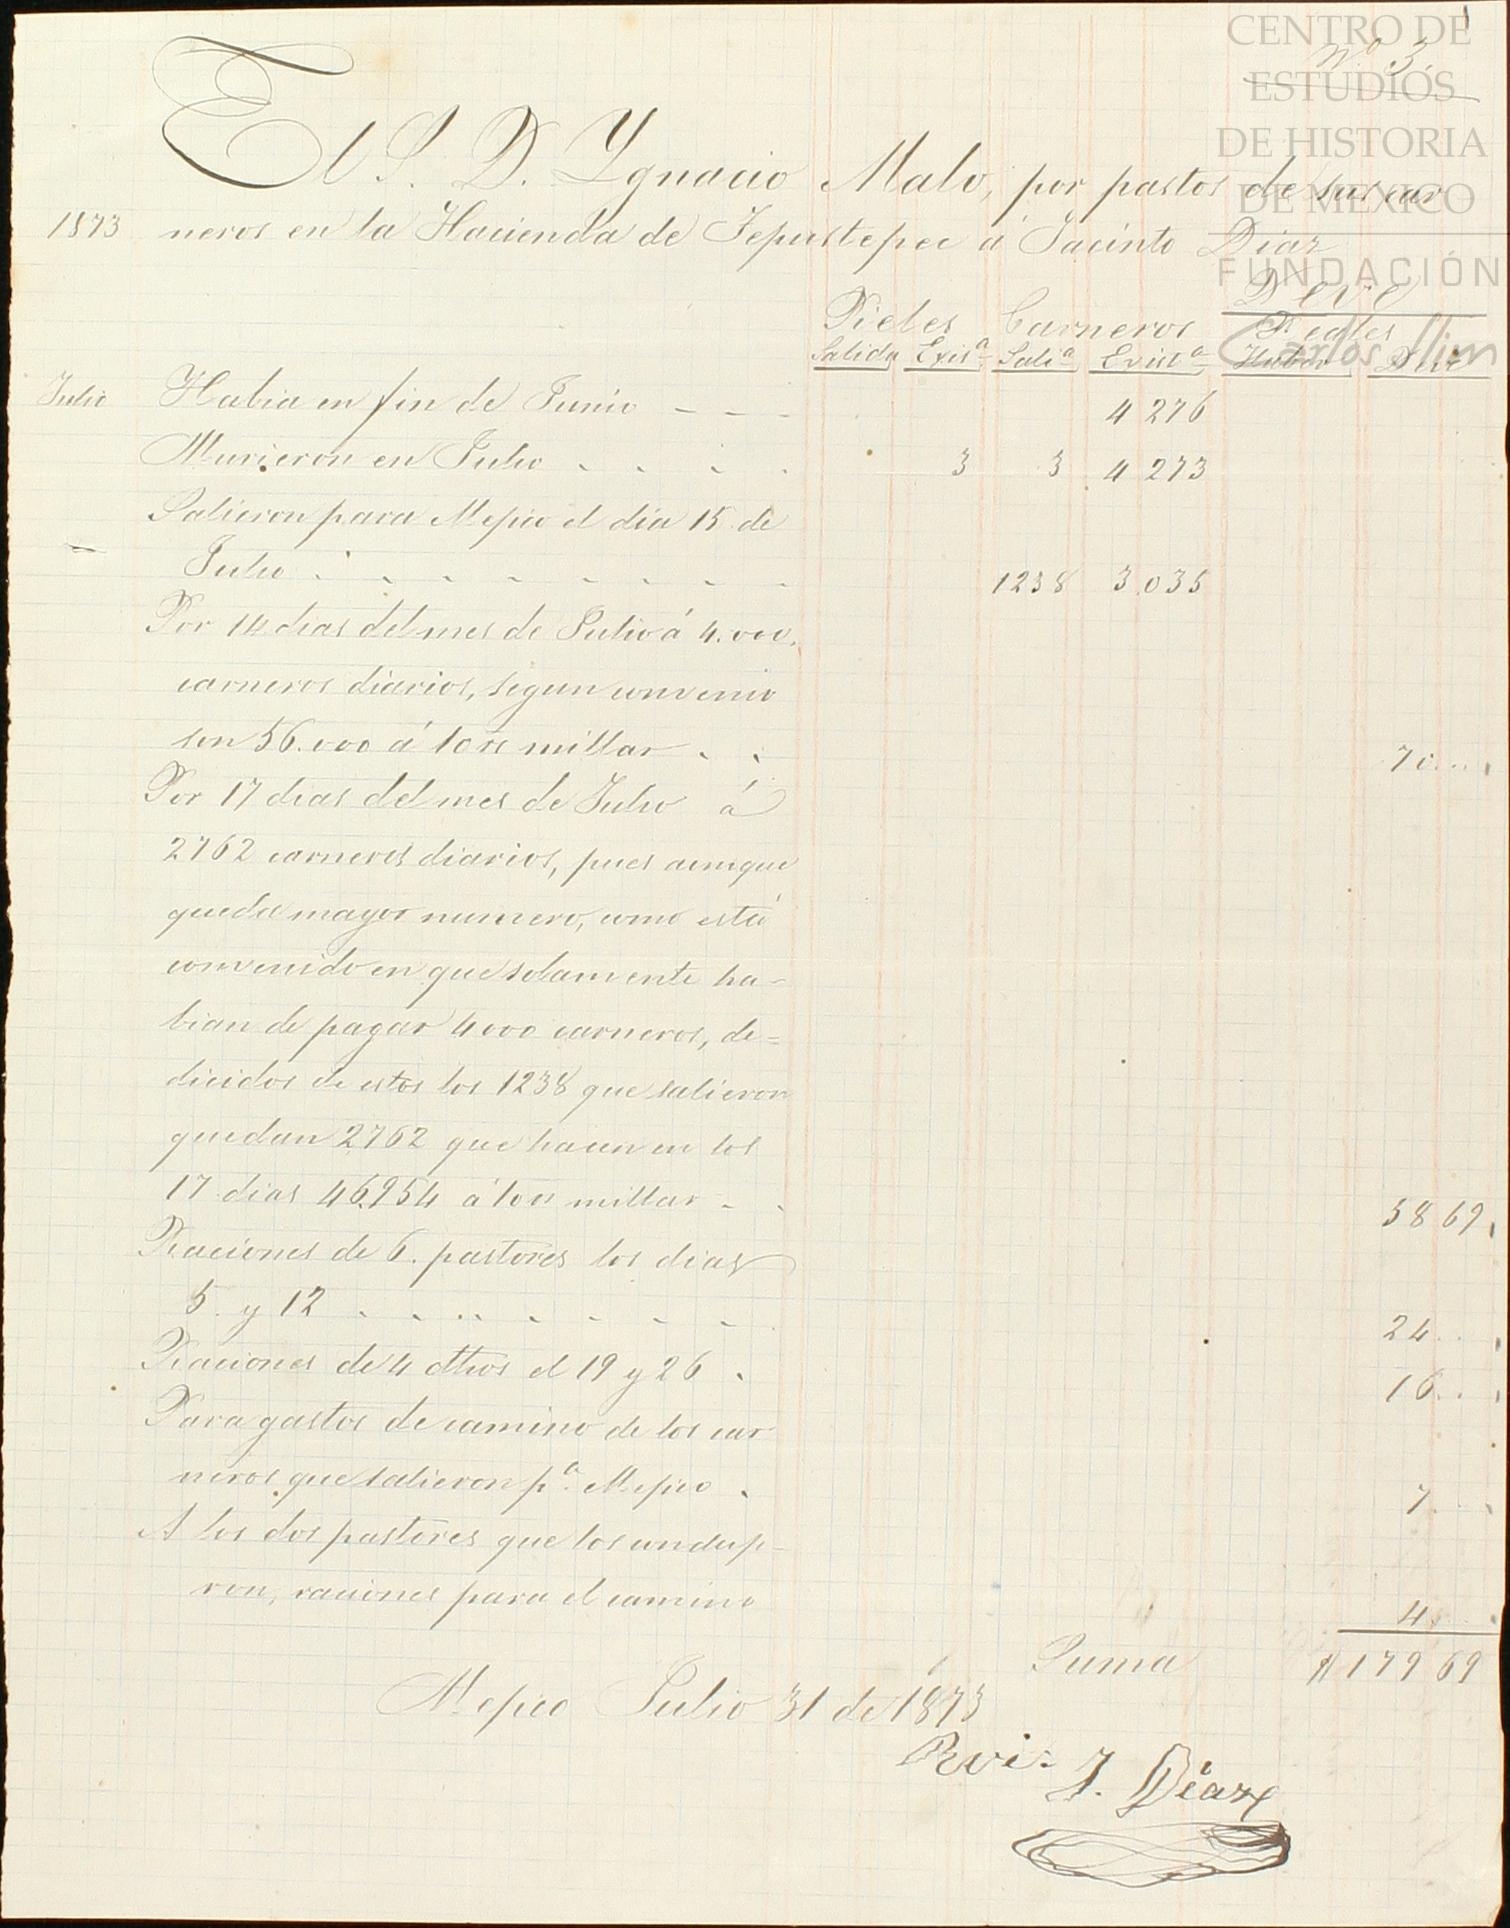 CENTRO DE
ESTUDIOS
DE HISTORIA
DE MÉXICO
FUNDACIÓN
Carlos Slim
Nº 3.
El S. D. Ygnacio Malo, por pastos de sus car
1873 neros en la Hacienda de Tepustepec á Jacinto Diaz
Deve
Pieles Carneros Reales
Salida Exisª Saliª Existª Haber Deve
Julio Habia en fin de Junio - - - 4 276
Murieron en Julio . . . . 3 3 4 273
Salieron para Mejico el dia 15 de
Julio . . . . . . . . 1238 3.035
Por 14 dias del mes de Julio á 4.000.
carneros diarios, segun convenio
son 56.000 á 10 rs millar . . 70...
Por 17 dias del mes de Julio á
2762 carneros diarios, pues aunque
queda mayor numero, como está
convenido en que solamente ha-
bian de pagar 4000 carneros, de=
ducidos de estos los 1238 que salieron
quedan 2762 que hacen en los
17 dias 46.954 á 10 rs millar - . 58 69
Raciones de 6. pastores los dias
5. y 12 . . . . . . . . 24..
Raciones de 4 dhos el 19 y 26 . 16..
Para gastos de camino de los car
neros que salieron pª. Mejico . 7...
A los dos pastores que los conduje-
ron, raciones para el camino 4...
Suma $ 179 69
Mejico Julio 31 de 1873
J. Diaz